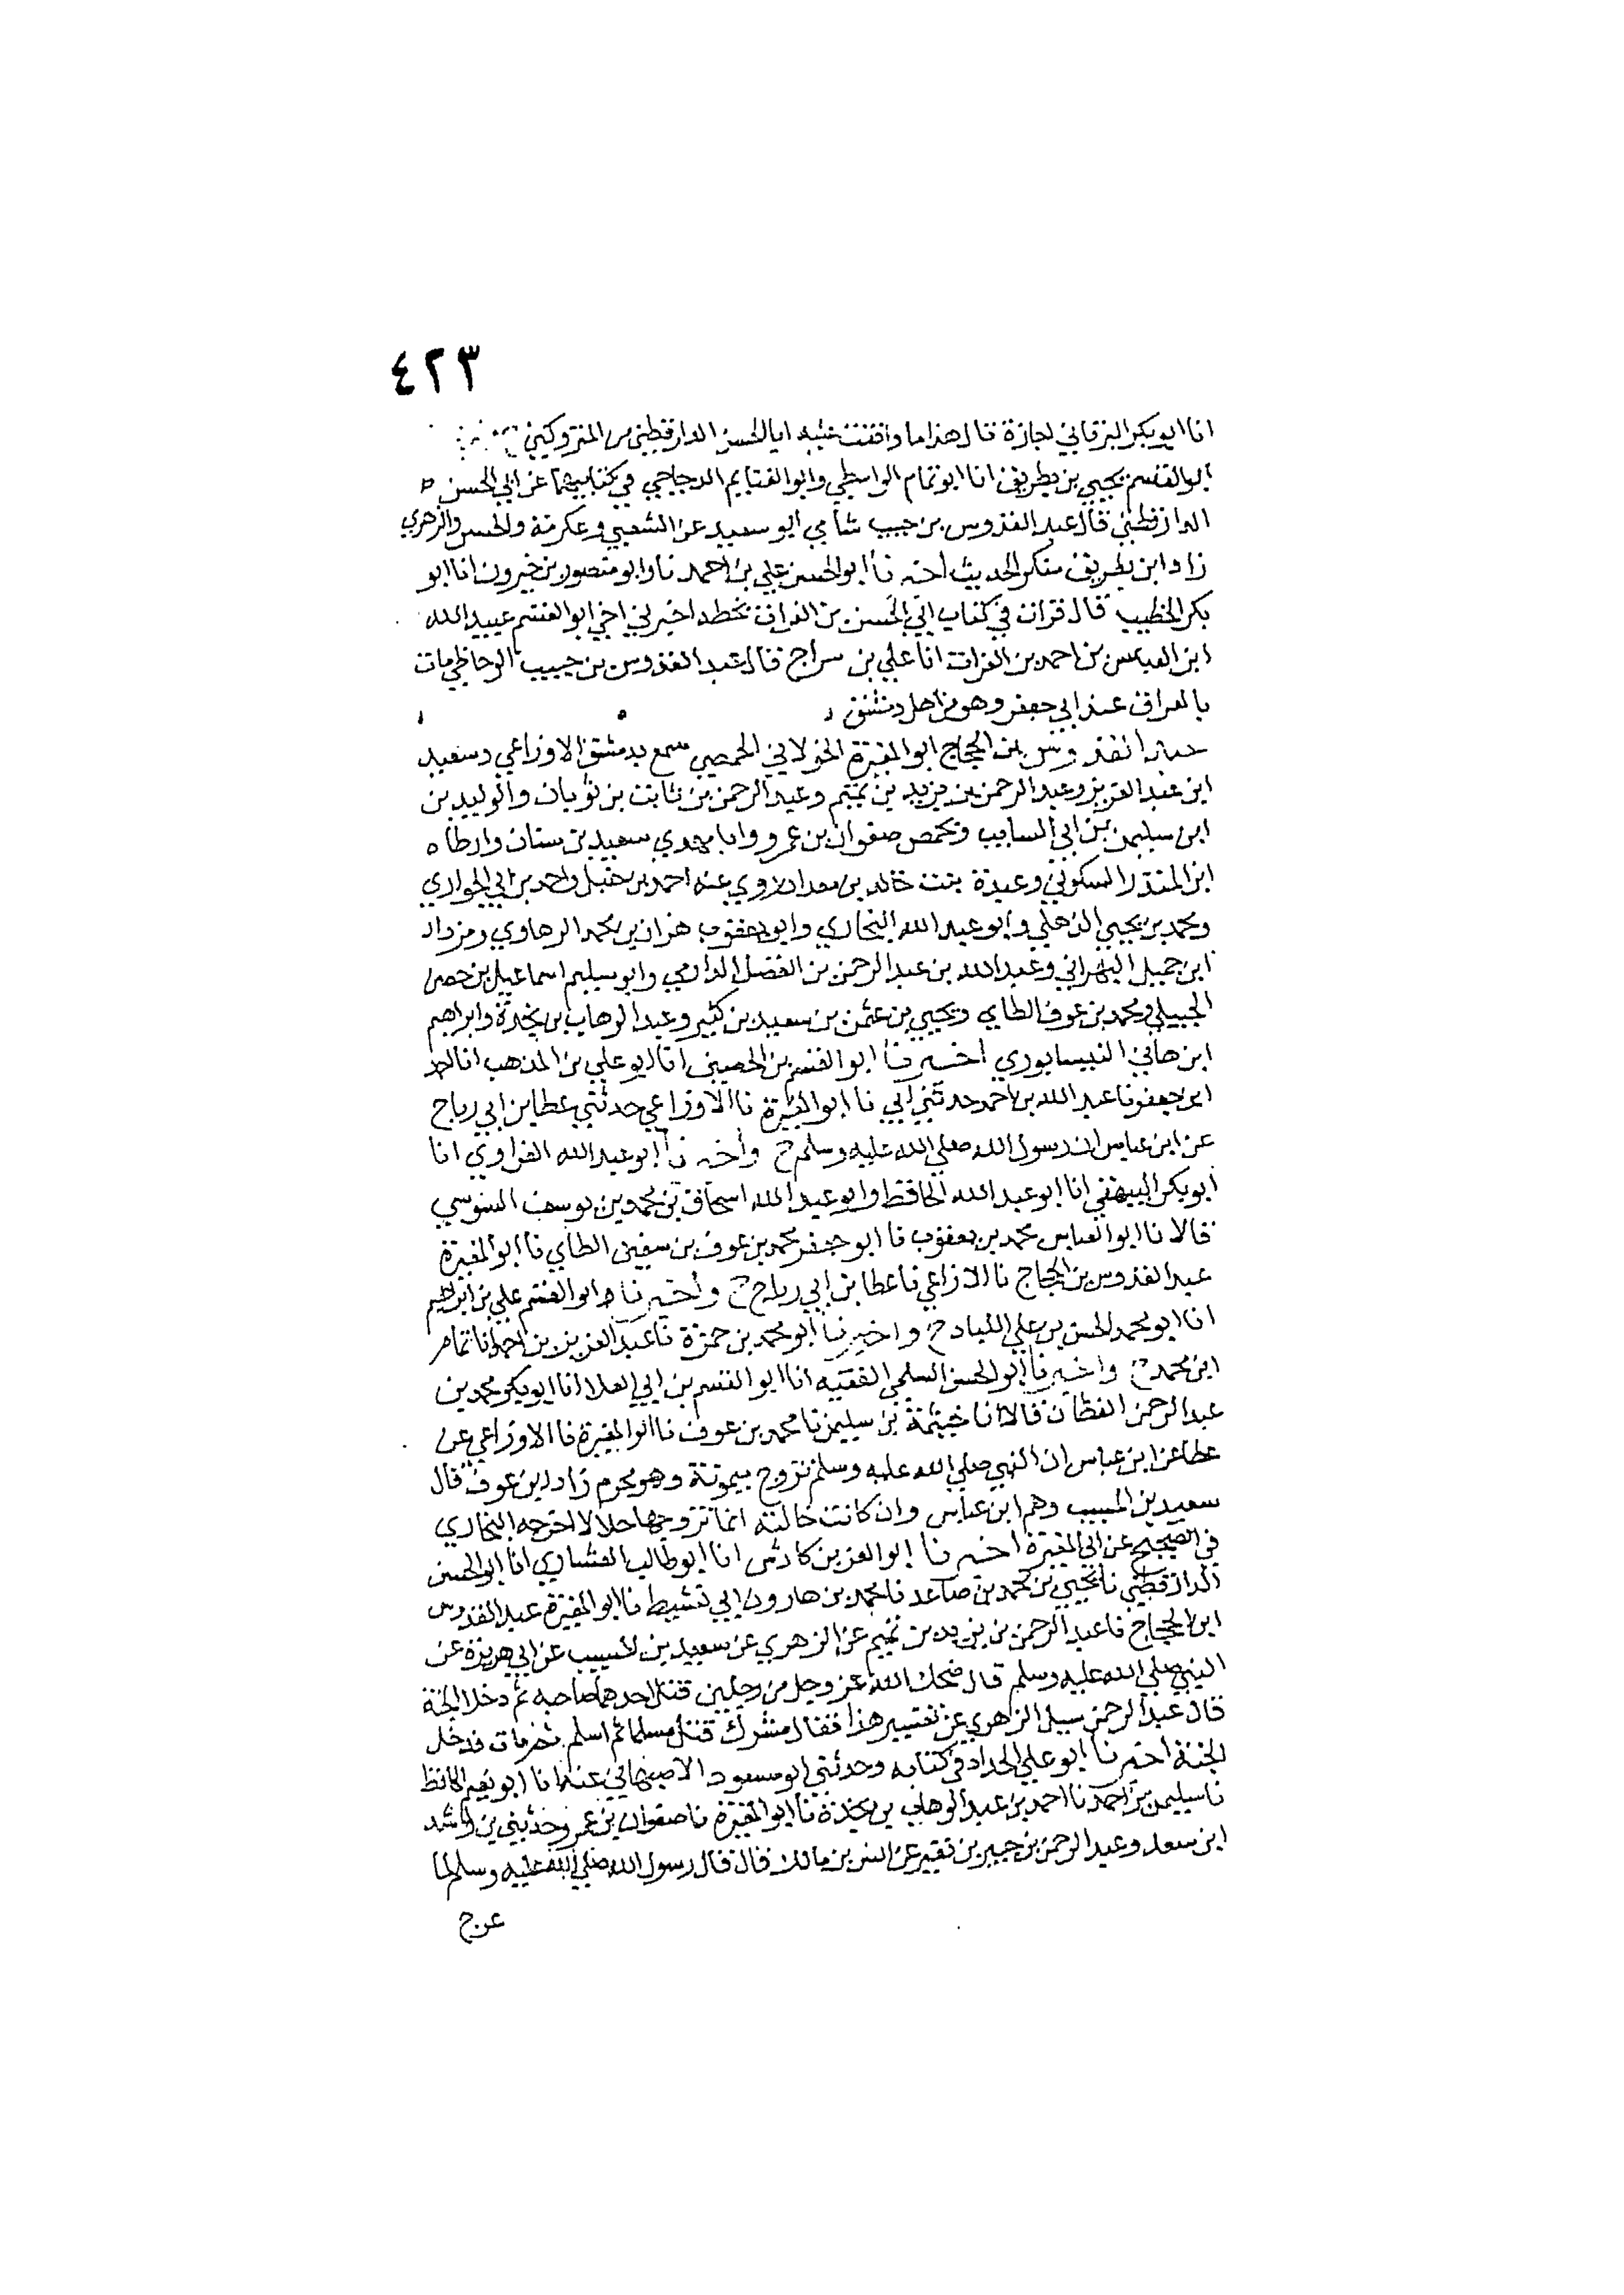 ٤٢٣
انا ابو بكر البرقاني اجازة قال هذا ما وافقت عليه ابا الحسن الدارقطني من المتروكين
ابو القسم يحيي بن بطريق انا ابو تمام الواسطي وابو الغنايم الدجاجي في كتابيهما عن ابي الحسن
الدارقطني قال عبد القدوس بن حبيب شامي ابو سعيد عن الشعبي وعكرمة والحسن والزهري
زاد ابن بطريق منكر الحديث اخبرنا ابو الحسن علي بن احمد نا وابو منصور بن خيرون انا ابو
بكر الخطيب قال قرات في كتاب ابي الحسن بن الفرات بخطه اخبرني اخي ابو القسم عبيد الله
ابن العباس بن احمد بن الفرات انا علي بن سراج قال عبد القدوس بن حبيب الوحاظي مات
بالعراق عند ابي جعفر وهو من اهل دمشق
عبد القدوس بن الحجاج ابو المغيرة الخولاني الحمصي سمع بدمشق الاوزاعي وسعيد
ابن عبد العزيز وعبد الرحمن بن يزيد بن تميم وعبد الرحمن بن ثابت بن ثوبان والوليد بن
ابن سليمن بن ابي السايب وبحمص صفوان بن عمرو وابا مهدي سعيد بن سنان وارطاه
ابن المنذر السكوني وعبدة بنت خالد بن معدان روي عنه احمد بن حنبل واحمد بن ابي الحواري
ومحمد بن يحيي الذهلي وابو عبد الله البخاري وابو يعقوب هزان بن محمد الرهاوي ومزداد
ابن جميل البهراني وعبد الله بن عبد الرحمن بن الفضل الدارمي وابو سليم اسماعيل بن حصن
الجبيلي ومحمد بن عوف الطاي ويحيي بن عثمن بن سعيد بن كثير وعبد الوهاب بن نجدة وابراهيم
ابن هاني النيسابوري اخبرنا ابو القسم بن الحصين انا ابو علي بن المذهب انا احمد
ابن جعفر نا عبد الله بن احمد حدثني ابي نا ابو المغيرة نا الاوزاعي حدثني عطا بن ابي رباح
عن ابن عباس ان رسول الله صلي الله عليه وسلم ح واخبرنا ابو عبد الله الفراوي انا
ابو بكر البيهقي انا ابو عبد الله الحافظ وابو عبد الله اسحاق بن محمد بن يوسف السوسي
قالا نا ابو العباس محمد بن يعقوب نا ابو جعفر محمد بن عوف بن سفين الطاي نا ابو المغيرة
عبد القدوس بن الحجاج نا الاوزاعي نا عطا بن ابي رباح ح واخبرنا ابو القسم علي بن ابراهيم
انا ابو محمد الحسن بن علي اللباد ح واخبرنا ابو محمد بن حمزة نا عبد العزيز بن احمد انا تمام
ابن محمد ح واخبرنا ابو الحسن السلمي الفقيه انا ابو القسم بن ابي العلا انا ابو بكر محمد بن
عبد الرحمن القطان قالا انا خيثمة بن سليمن نا محمد بن عوف نا ابو المغيرة نا الاوزاعي عن
عطا عن ابن عباس ان النبي صلي الله عليه وسلم تزوج بيمونة وهو محرم زاد ابن عوف قال
سعيد بن المسيب وهم ابن عباس وان كانت خالته انما تزوجها حلالا اخرجه البخاري
في الصحيح عن ابي المغيرة اخبرنا ابو العز بن كادش انا ابو طالب العشاري انا ابو الحسن
الدارقطني نا يحيي بن محمد بن صاعد نا محمد بن هارون ابي نشيط نا ابو المغيرة عبد القدوس
ابن الحجاج نا عبد الرحمن بن يزيد بن تميم عن الزهري عن سعيد بن المسيب عن ابي هريرة عن
النبي صلي الله عليه وسلم قال ضحك الله عز وجل من رجلين قتل احدهما صاحبه ثم دخلا الجنة
قال عبد الرحمن سيل الزهري عن تفسير هذا فقال مشرك قتل مسلما ثم اسلم ثم مات فدخل
الجنة اخبرنا ابو علي الحداد في كتابه وحدثني ابو مسعود الاصبهاني عنه انا ابو نعيم الحافظ
نا سليمن بن احمد نا احمد بن عبد الوهاب بن نجدة نا ابو المغيرة نا صفوان بن عمرو حدثني بن راشد
ابن سعد وعبد الرحمن بن جبير بن نفير عن انس بن مالك قال قال رسول الله صلي الله عليه وسلم لما
عرج